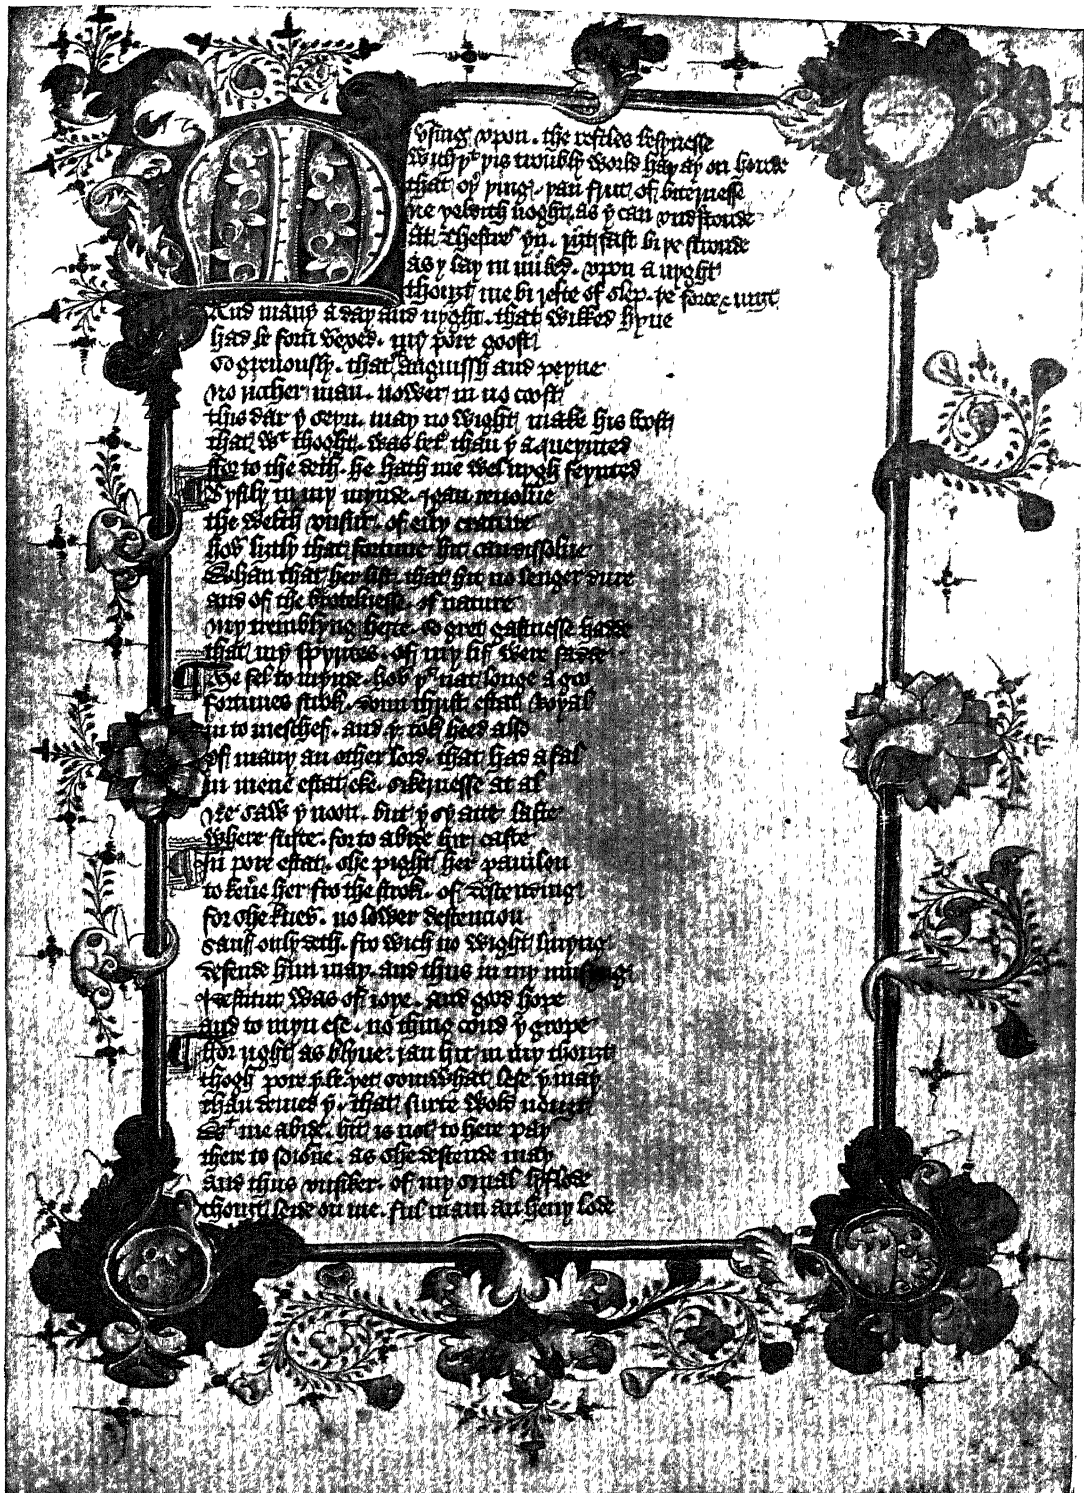 Musing vpon . the restles besynesse
Wich yt yis troubly world hay ay on honde
that oy ying . yan frut of biternesse
ne yeldith noght as y can vndstonde
At Chestre yn . ryt fast bi ye stronde
as y lay in mi bed . vpon a nyght
thouzt me bi refte of slep . ye force & migt
And many a day and nyght . that wikked hyne
had be forn vexed . my pore goost
So greuously . that anguissh and peyne
No richer man . nower in no cost
this dar y seyn . may no wight make his bost
that wt thoght . was bet than y aqueynted
ffor to the deth . he hath me wel nygh feynted
Bysily in my mynde . y gan reuolue
the welth vnsur . of euy creature
how litly that fortune hit can dissolue
Whan that her list that hit no lenger dure
and of the brotelnesse . of nature
My tremblyng herte . so gret gastnesse hadde
that my spyrites . of my lif were sadde
Me fel to mynde . how yt nat longe a go
fortunes strok . doun thrist estat royal
in to meschef . and y tok heed also
of many an other lord . that had a fal
in mene estat eke . sikernesse at al
Ne saw y noon . but y sy atte laste
where suerte . for to abide hir caste
In pore estat . she pight her pauilon
to keue her fro the strok . of descending
for she knew . no lower descencion
sauf only deth . fro wich no wight lyuyng
defende him may . and thus in my musyng
y destitut was of ioye . and good hope
and to myn ese . no thing coud y grope
ffor right as blyue . ran hit in my thouzt
thogh pore y be . yet somwhat lese y may
than demed y . that surte wold nouzt
Wt me abide . hit is not to here pay
there to soioũe . as she descende may
and thus vnsiker . of my smal lyflode
thouzt leide on me . ful mani an heuy lode